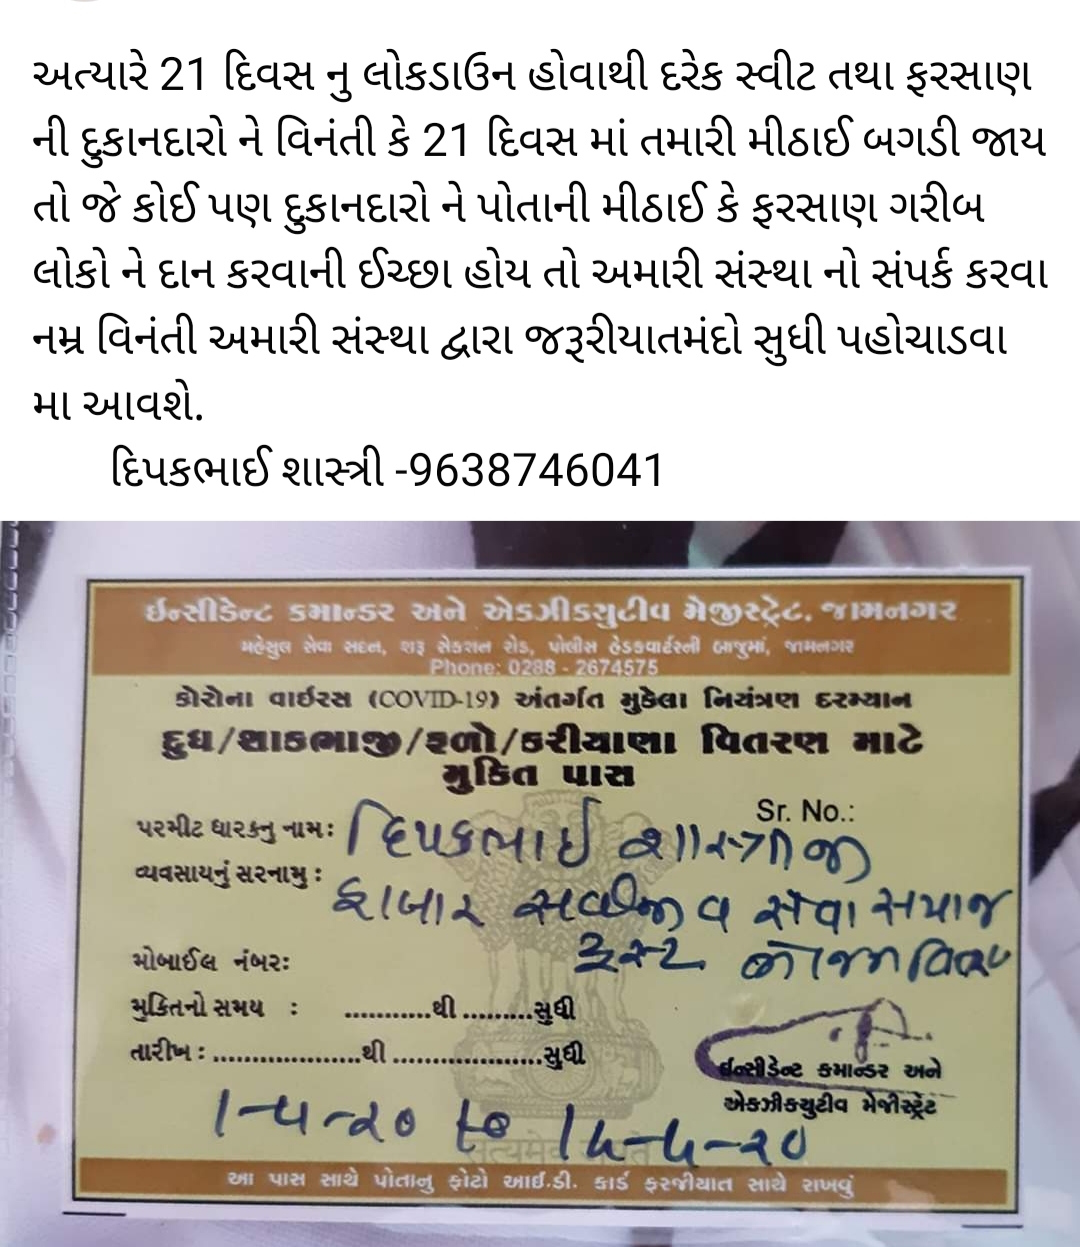 અત્યારે 21 દિવસ નુ લોકડાઉન હોવાથી દરેક સ્વીટ તથા ફરસાણ
ની દુકાનદારો ને વિનંતી કે 21 દિવસ માં તમારી મીઠાઈ બગડી જાય
તો જે કોઈ પણ દુકાનદારો ને પોતાની મીઠાઈ કે ફરસાણ ગરીબ
લોકો ને દાન કરવાની ઈચ્છા હોય તો અમારી સંસ્થા નો સંપર્ક કરવા
નમ્ર વિનંતી અમારી સંસ્થા દ્વારા જરૂરીયાતમંદો સુધી પહોચાડવા
મા આવશે.
દિપકભાઈ શાસ્ત્રી -9638746041
ઇન્સીડેન્ટ કમાન્ડર અને એકઝીકયુટીવ મેજીસ્ટ્રેટ, જામનગર
મહેસુલ સેવા સદન, શરૂ સેકશન રોડ, પોલીસ હેડકવાર્ટરની બાજુમાં, જામનગર
Phone: 0288 - 2674575
કોરોના વાઈરસ (COVID-19) અંતર્ગત મુકેલા નિયંત્રણ દરમ્યાન
દુધ/શાકભાજી/ફળો/કરીયાણા વિતરણ માટે
મુકિત પાસ
Sr. No.:
પરમીટ ધારકનુ નામ: દિપકભાઈ શાસ્ત્રીજી
વ્યવસાયનું સરનામુ : સેવા સમાજ
ટ્રસ્ટ
મોબાઈલ નંબર:
મુકિતનો સમય : ...........થી .........સુધી
તારીખ : ...................થી ...................સુધી
ઇન્સીડેન્ટ કમાન્ડર અને
એકઝીકયુટીવ મેજીસ્ટ્રેટ
1-4-20 to 14-4-20
આ પાસ સાથે પોતાનુ ફોટો આઈ.ડી. કાર્ડ ફરજીયાત સાથે રાખવું